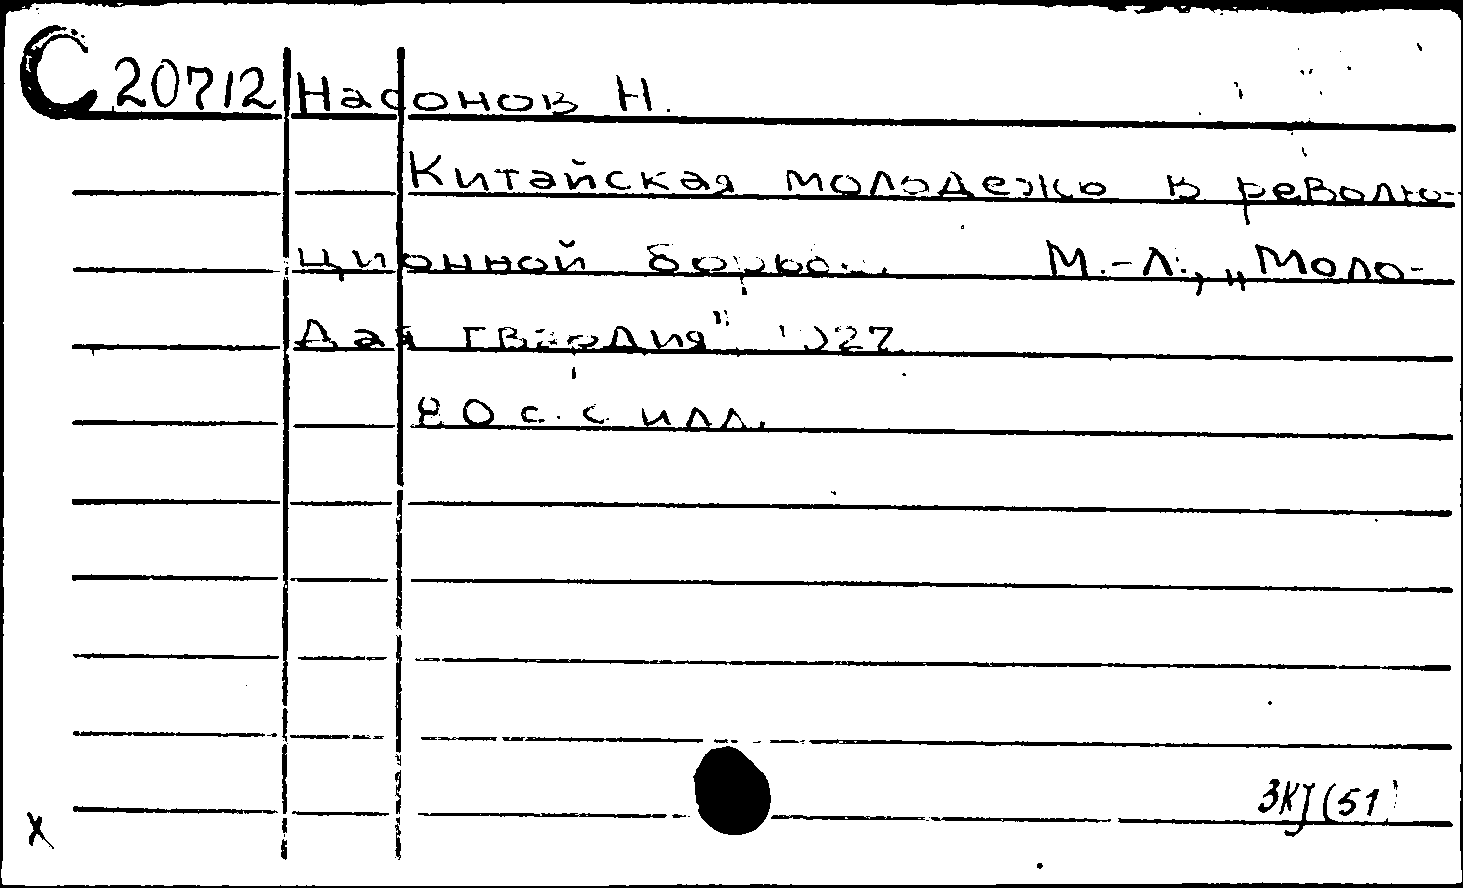 С 20712 Насонов Н.
Китайская молодежь в револю-
ционной борьбе. М.-Л., „Моло-
дая гвардия" 1927
80 с. с илл.
3КJ (51)
х